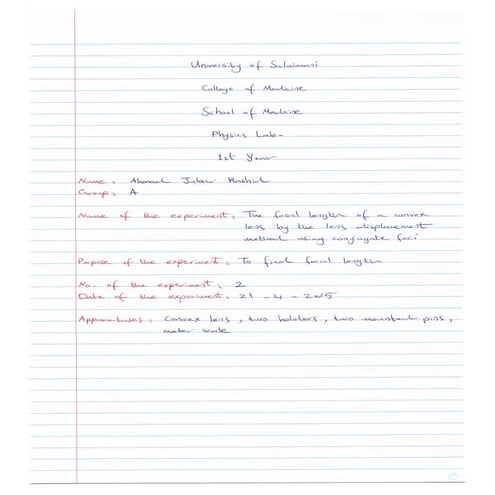 University of Sulaimani
College of Medicine
School of Medicine
Physics Lab-
1st Year
Name: Ahmad Jabar Rashid
Group: A
Name of the experiment: The focal length of a convex
lens by the lens displacement
method using conjugate foci
Purpose of the experiment: To find focal length
No. of the experiment: 2
Date of the experiment: 21 - 4 - 2015
Apparatuses: Convex lens, two holders, two mounted pins,
meter scale